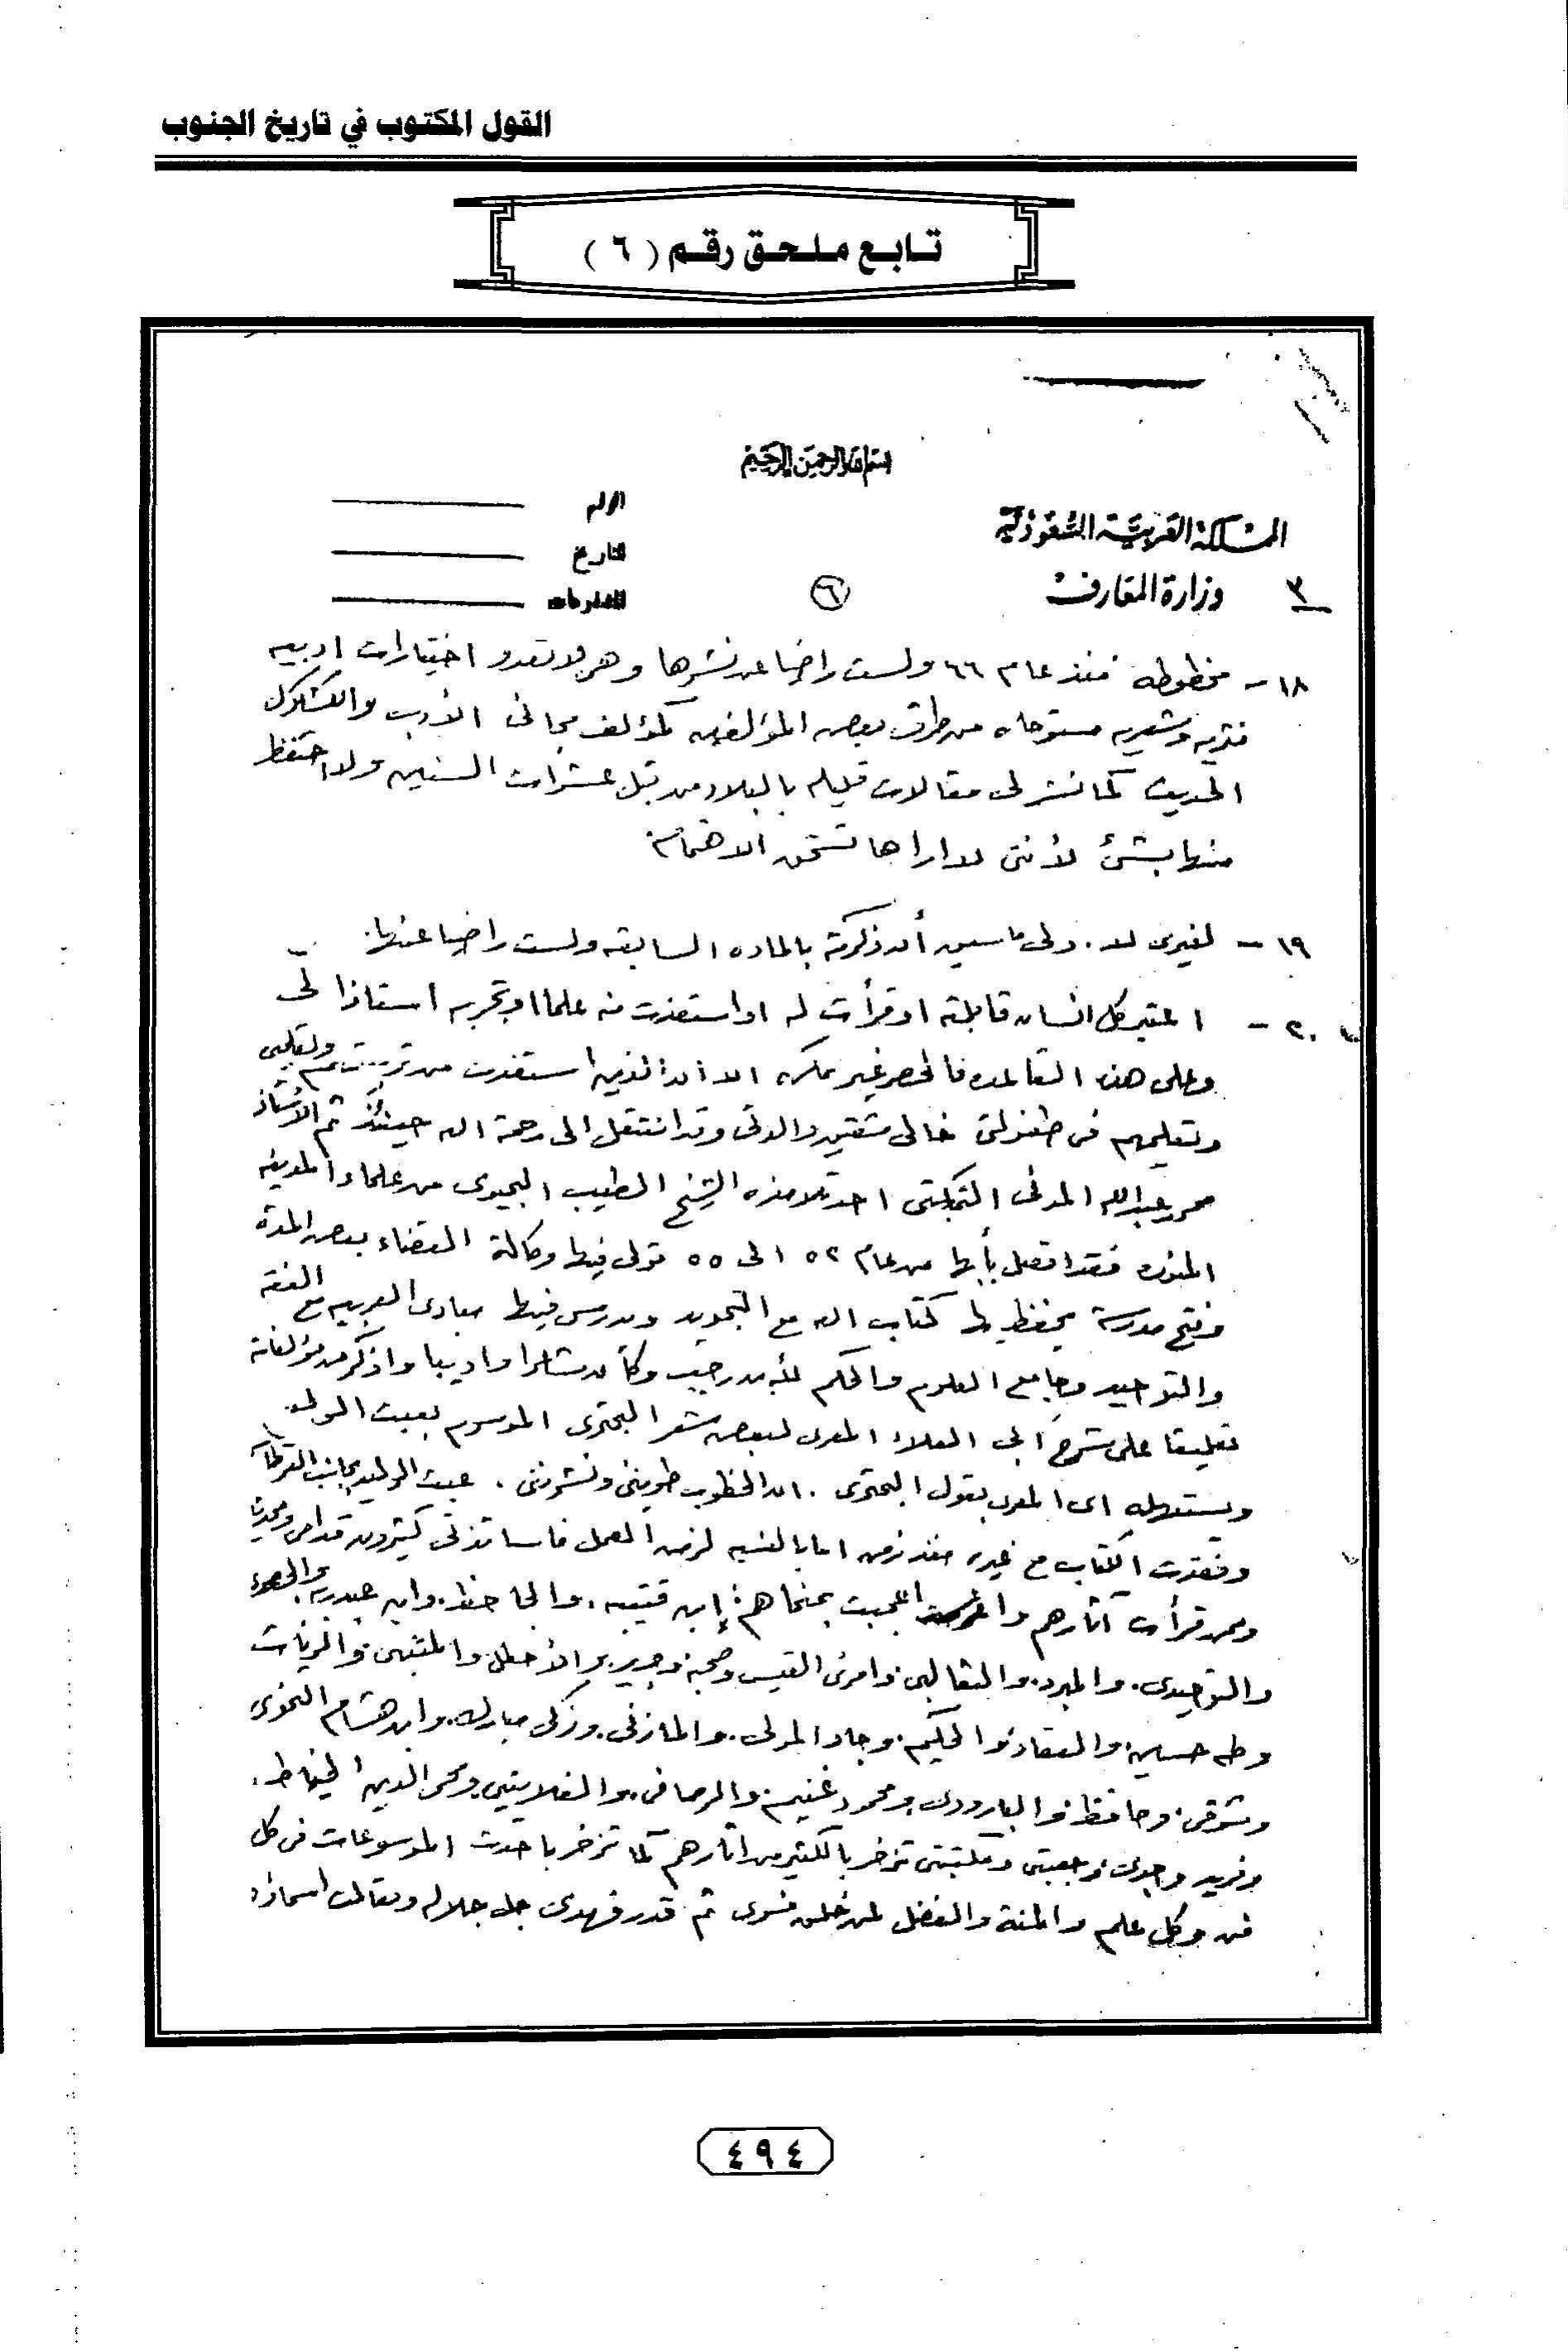 القول المكتوب في تاريخ الجنوب
تابع ملحق رقم ( ٦ )
بسم الله الرحمن الرحيم
المملكة العربية السعودية
وزارة المعارف
الرقم
التاريخ
المشفوعات
٣
٦
١٨ - مخطوطه منذ عام ٦٦ ولست راضيا عن نشرها وهى لا تعدو اختيارات ادبيه
نثريه وشعريه مستوحاه من طراق بعض المؤلفين كمؤلف مجانى الأدب والكشكول
الحديث كما نشر لى مقالات قليله بالبلاد من قبل عشرات السنين ولا احتفظ
منها بشئ لأننى لا اراها تستحق الاهتمام
١٩ - لغيرى لا . ولى ما سبق أن ذكرته بالماده السابقه ولست راضيا عنها.
٢٠ - اعتبر كل انسان قابلته او قرأت له او استفدت منه علما او تجربه استاذا لى
وعلى هذه القاعده فالحصر غير ممكن الا ان الذين استفدت من تربيتهم وتعليمى
وتعليمهم فى طفولتى خالى شقيق والدتى وقد انتقل الى رحمة الله حينئذ ثم الأستاذ
محمد عبدالله المدنى التنبكتى احد تلامذه الشيخ الطيب من علماء المدينه
المنوره فقد اتصل بأبها من عام ٥٢ الى ٥٥ تولى فيها وكالة القضاء بعض المدة
وفتح مدرسة يحفظ بها كتاب الله مع التجويد ويدرس فيها مبادى العربيه مع الفقه
والتوحيد وجامع العلوم والحكم لابن رجب وكان شاعرا واديبا واذكر من مؤلفاته
تعليقا على شرح ابى العلاء المعرى لبعض شعر البحترى الموسوم بعبث الوليد
ويستهله اى المعرى بقول البحترى . ان الخطوب طوينى ونشرننى . عبث الوليد بجانب القرطاس
وفقدت الكتاب مع غيره منذ زمن اما بالنسبه لزمن العمل فاساتذتى كثيرون قدامى ومحدثين
وممن قرأت آثارهم واعجبت بمنحاهم: ابن قتيبه. والجاحظ. وابن عبدربه
والتوحيدى. والمبرد. والثعالبى وامرئ القيس وصحبه وجرير والأخطل والمتنبى والزيات
وطه حسين والعقاد والحكيم. وجاد المولى. والمازنى. وزكى مبارك. وابن هشام النحوى
وشوقى. وحافظ والبارودى ومحمود غنيم. والرصافى. والغلايينى ومحى الدين الخياط.
وفريد وجدى. وجعبتى ومكتبتى تزخر بالكثير من آثارهم كما تزخر باحدث الموسوعات فى كل
فن وكل علم والمنة والفضل لمن خلق فسوى ثم قدر فهدى جل جلاله وتعالت اسماؤه
٤٩٤